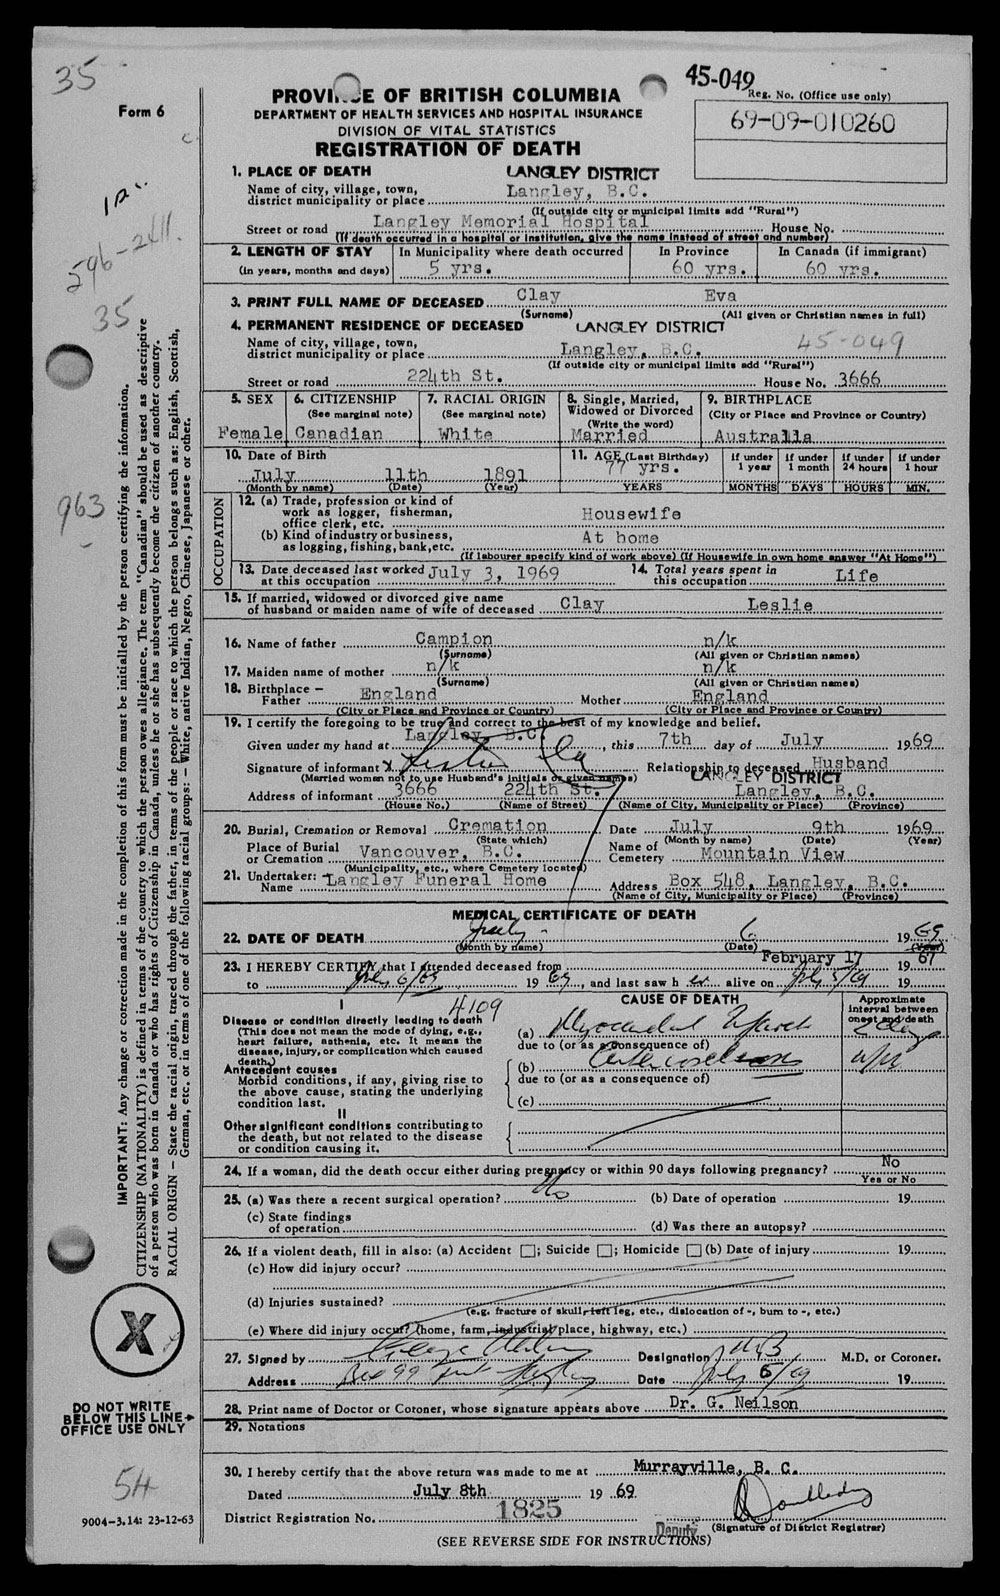 35
45-049
Reg. No. (Office use only)
Form 6
PROVINCE OF BRITISH COLUMBIA
DEPARTMENT OF HEALTH SERVICES AND HOSPITAL INSURANCE
69-09-010260
DIVISION OF VITAL STATISTICS
REGISTRATION OF DEATH
1. PLACE OF DEATH LANGLEY DISTRICT
Name of city, village, town,
district municipality or place Langley, B.C.
(If outside city or municipal limits add "Rural")
Street or road Langley Memorial Hospital House No.
(If death occurred in a hospital or institution, give the name instead of street and number)
2. LENGTH OF STAY In Municipality where death occurred In Province In Canada (if immigrant)
(in years, months and days) 5 yrs. 60 yrs. 60 yrs.
596-2411.
35
3. PRINT FULL NAME OF DECEASED Clay Eva
(Surname) (All given or Christian names in full)
4. PERMANENT RESIDENCE OF DECEASED LANGLEY DISTRICT
Name of city, village, town, 45-049
district municipality or place Langley, B.C.
(If outside city or municipal limits add "Rural")
Street or road 224th St. House No. 3666
5. SEX 6. CITIZENSHIP 7. RACIAL ORIGIN 8. Single, Married, 9. BIRTHPLACE
(See marginal note) (See marginal note) Widowed or Divorced (City or Place and Province or Country)
(Write the word)
Female Canadian White Married Australia
10. Date of Birth 11. AGE (Last Birthday) If under 1 year If under 1 month If under 24 hours If under 1 hour
July 11th 1891 77 yrs.
(Month by name) (Date) (Year) YEARS MONTHS DAYS HOURS MIN.
963
OCCUPATION
12. (a) Trade, profession or kind of
work as logger, fisherman,
office clerk, etc. Housewife
(b) Kind of industry or business,
as logging, fishing, bank, etc. At home
(If labourer specify kind of work above) (If Housewife in own home answer "At Home")
13. Date deceased last worked 14. Total years spent in
at this occupation July 3, 1969 this occupation Life
15. If married, widowed or divorced give name
of husband or maiden name of wife of deceased Clay Leslie
16. Name of father Campion n/k
(Surname) (All given or Christian names)
17. Maiden name of mother n/k n/k
(Surname) (All given or Christian names)
18. Birthplace –
Father England Mother England
(City or Place and Province or Country) (City or Place and Province or Country)
19. I certify the foregoing to be true and correct to the best of my knowledge and belief.
Given under my hand at Langley, B.C., this 7th day of July 1969
Signature of informant x Leslie Clay Relationship to deceased Husband
(Married women not to use Husband's initials or given names) LANGLEY DISTRICT
Address of informant 3666 224th St. Langley, B.C.
(House No.) (Name of Street) (Name of City, Municipality or Place) (Province)
20. Burial, Cremation or Removal Cremation Date July 9th 1969
(State which) (Month by name) (Date) (Year)
Place of Burial Name of
or Cremation Vancouver, B.C. Cemetery Mountain View
(Municipality, etc., where Cemetery located)
21. Undertaker:
Name Langley Funeral Home Address Box 548, Langley, B.C.
(Name of City, Municipality or Place) (Province)
MEDICAL CERTIFICATE OF DEATH
22. DATE OF DEATH July 6 1969
(Month by name) (Date) (Year)
23. I HEREBY CERTIFY that I attended deceased from February 17 1967
to July 6/69 1969, and last saw her alive on July 5/69 19
I 4109 CAUSE OF DEATH Approximate
interval between
onset and death
Disease or condition directly leading to death
(This does not mean the mode of dying, e.g.,
heart failure, asthenia, etc. It means the
disease, injury, or complication which caused
death.)
(a) Myocardial Infarct 2 days
due to (or as a consequence of)
Antecedent causes
Morbid conditions, if any, giving rise to
the above cause, stating the underlying
condition last.
(b)
due to (or as a consequence of)
(c)
II
Other significant conditions contributing to
the death, but not related to the disease
or condition causing it.
24. If a woman, did the death occur either during pregnancy or within 90 days following pregnancy? No
Yes or No
25. (a) Was there a recent surgical operation? No (b) Date of operation 19
(c) State findings
of operation (d) Was there an autopsy?
26. If a violent death, fill in also: (a) Accident ; Suicide ; Homicide (b) Date of injury 19
(c) How did injury occur?
(d) Injuries sustained?
(e.g. fracture of skull, left leg, etc., dislocation of -, burn to -, etc.)
(e) Where did injury occur? (home, farm, industrial place, highway, etc.)
27. Signed by Designation M.D. or Coroner.
Address Box 99 Date 19
28. Print name of Doctor or Coroner, whose signature appears above Dr. G. Neilson
29. Notations
30. I hereby certify that the above return was made to me at Murrayville, B. C.
Dated July 8th 19 69
District Registration No. 1825
Deputy (Signature of District Registrar)
(SEE REVERSE SIDE FOR INSTRUCTIONS)
IMPORTANT: Any change or correction made in the completion of this form must be initialled by the person certifying the information.
CITIZENSHIP (NATIONALITY) is defined in terms of the country to which the person owes allegiance. The term "Canadian" should be used as descriptive
of a person who was born in Canada or who has rights of Citizenship in Canada, unless he or she has subsequently become the citizen of another country.
RACIAL ORIGIN – State the racial origin, traced through the father, in terms of the people or race to which the person belongs such as: English, Scottish,
German, etc. or in terms of one of the following racial groups: – White, native Indian, Negro, Chinese, Japanese or other.
X
DO NOT WRITE
BELOW THIS LINE
OFFICE USE ONLY
54
9004-3.14: 23-12-63